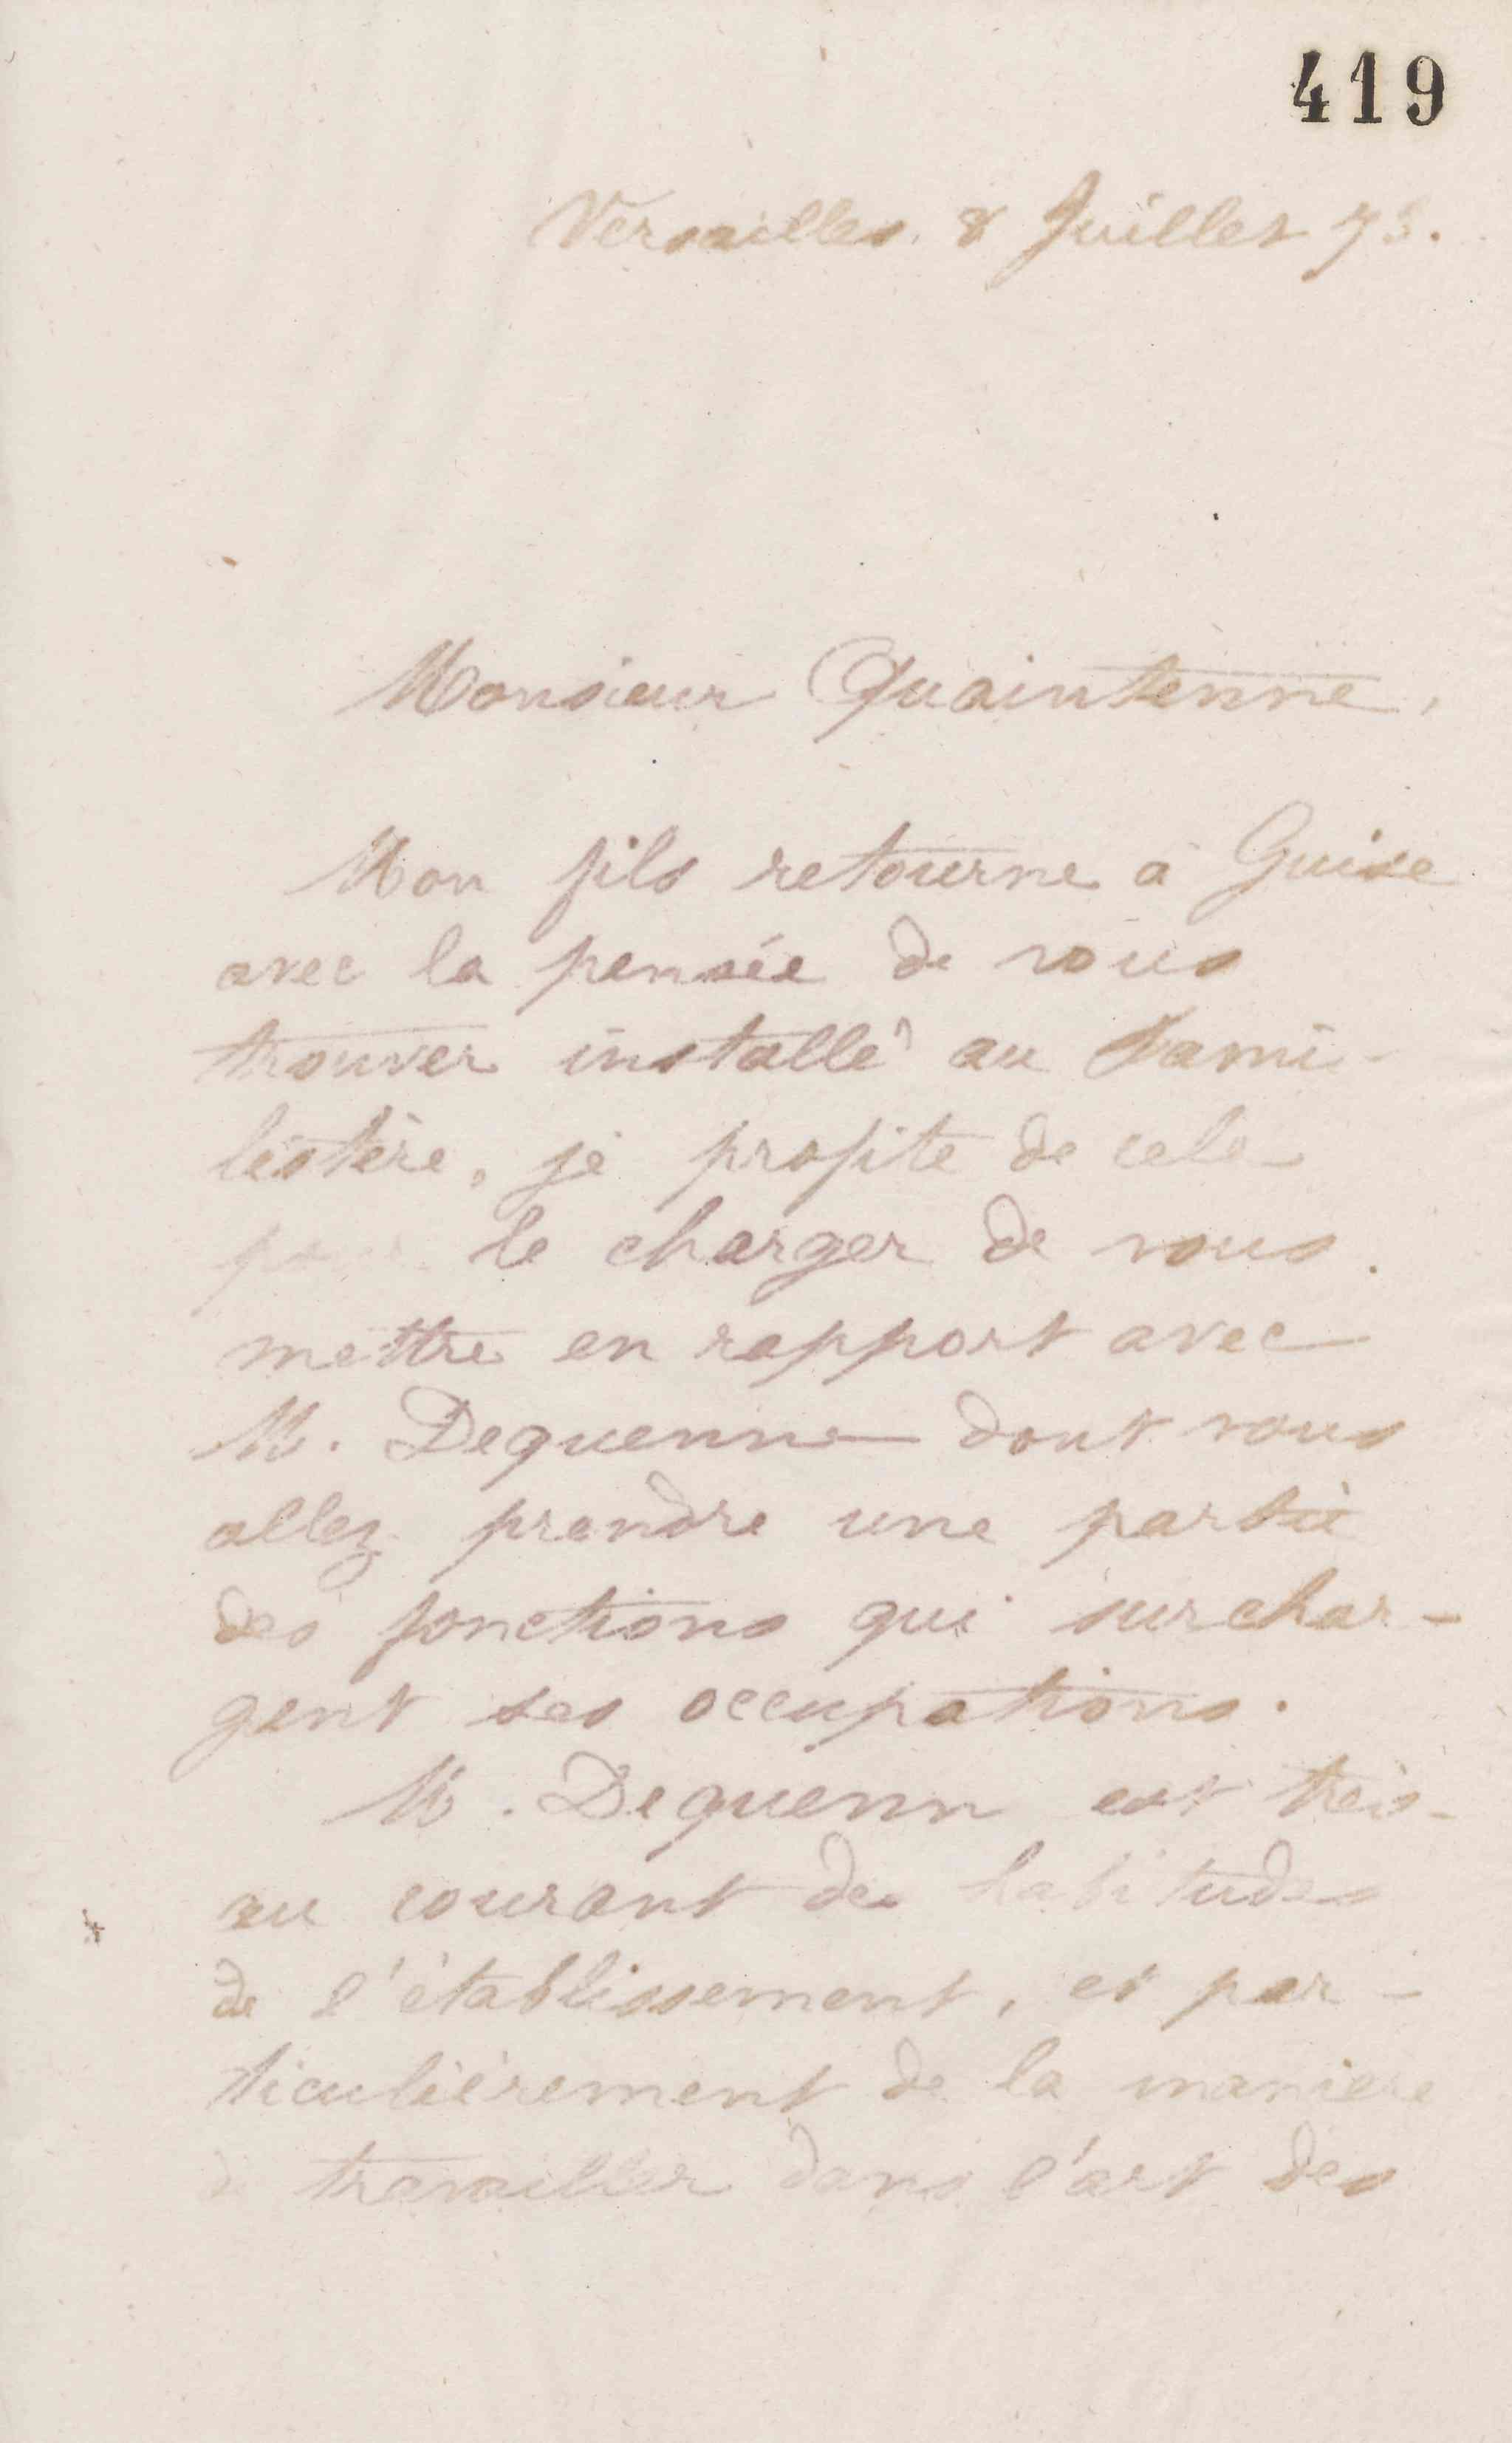 419
Versailles 8 Juillet 73.
Monsieur Quaintenne,
Mon fils retourne à Guise
avec la pensée de vous
trouver installé au Fami-
listère, je profite de cela
pour le charger de vous
mettre en rapport avec
M. Dequenne dont vous
allez prendre une partie
des fonctions qui surchar-
gent ses occupations.
M. Dequenn est très-
au courant des habitudes
de l'établissement, et par-
ticulièrement de la maniere
de travailler dans l'art des